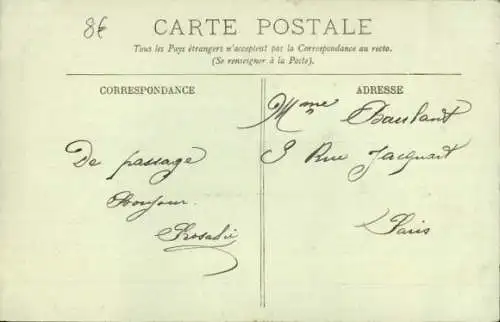 8€
CARTE POSTALE
Tous les Pays étrangers n'acceptent pas la Correspondance au recto.
(Se renseigner à la Poste).
CORRESPONDANCE
De passage
Bonjour.
Rosalie
ADRESSE
Mme Baulant
3 Rue Jacquart
Paris